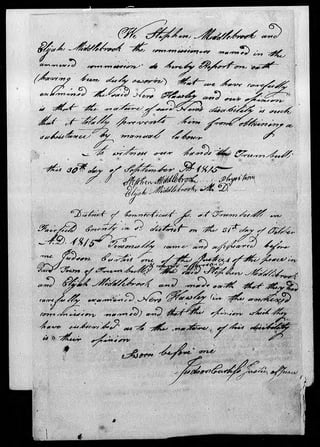 We Stephen Middlebrook and
Elijah Middlebrook the commissioners named in the
annexed commission do hereby Report on oath
(having been duly sworn) that we have carefully
examined the said Nero Hawley and our opinion
is that the nature of said Nero's disability is such
that it totally prevents him from obtaining a
subsistance by manual labour
In witness our hands this Trumbull
this 30th day of September AD. 1815
Stephen Middlebrook Physician
Elijah Middlebrook, M. D.
District of Connecticut ss. at Trumbull in
Fairfield County in sd district on the 31st day of October
A.D. 1815 Personally came and appeared before
me Judson Curtis one of the Justices of the peace in
said Town of Trumbull the said Stephen Middlebrook
and Elijah Middlebrook and made oath that they have
carefully examined Nero Hawley in the annexed
commission named and that the opinion which they
have subscribed as to the nature of his disability
is their opinion
Sworn before me
Judson Curtiss Justice of Peace